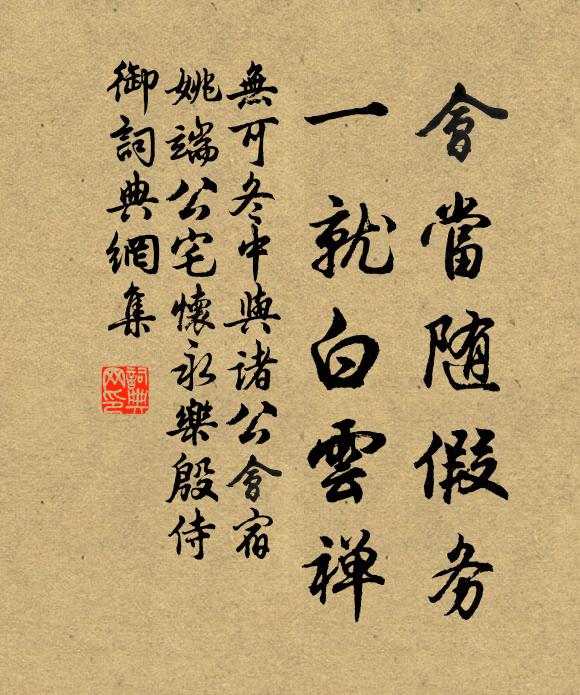 會當随假务
一就白雲禅
無可冬中與诸公會宿
姚端公宅懷永樂殷侍
御詞典網集
詞典
网印